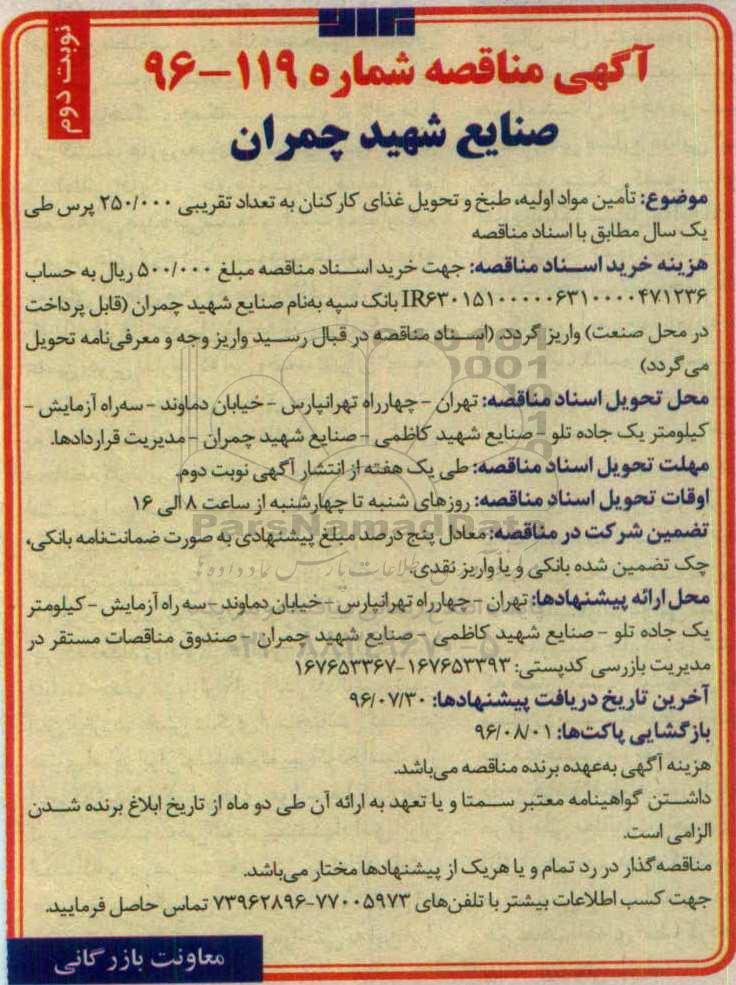 نوبت دوم
آگهی مناقصه شماره ۱۱۹-۹۶
صنایع شهید چمران
موضوع: تأمین مواد اولیه، طبخ و تحویل غذای کارکنان به تعداد تقریبی ۲۵۰/۰۰۰ پرس طی
یک سال مطابق با اسناد مناقصه
هزینه خرید اسناد مناقصه: جهت خرید اسناد مناقصه مبلغ ۵۰۰/۰۰۰ ریال به حساب
IR۶۳۰۱۵۱۰۰۰۰۰۰۶۳۱۰۰۰۰۴۷۱۲۳۶ بانک سپه به‌نام صنایع شهید چمران (قابل پرداخت
در محل صنعت) واریز گردد. (اسناد مناقصه در قبال رسید واریز وجه و معرفی‌نامه تحویل
می‌گردد)
محل تحویل اسناد مناقصه: تهران - چهارراه تهرانپارس - خیابان دماوند - سه‌راه آزمایش -
کیلومتر یک جاده تلو - صنایع شهید کاظمی - صنایع شهید چمران - مدیریت قراردادها.
مهلت تحویل اسناد مناقصه: طی یک هفته از انتشار آگهی نوبت دوم.
اوقات تحویل اسناد مناقصه: روزهای شنبه تا چهارشنبه از ساعت ۸ الی ۱۶
ParsNamadData
تضمین شرکت در مناقصه: معادل پنج درصد مبلغ پیشنهادی به صورت ضمانت‌نامه بانکی،
چک تضمین شده بانکی و یا واریز نقدی.
محل ارائه پیشنهادها: تهران - چهارراه تهرانپارس - خیابان دماوند - سه راه آزمایش - کیلومتر
یک جاده تلو - صنایع شهید کاظمی - صنایع شهید چمران - صندوق مناقصات مستقر در
مدیریت بازرسی کدپستی: ۱۶۷۶۵۳۳۹۳-۱۶۷۶۵۳۳۶۷
آخرین تاریخ دریافت پیشنهادها: ۹۶/۰۷/۳۰
بازگشایی پاکت‌ها: ۹۶/۰۸/۰۱
هزینه آگهی به‌عهده برنده مناقصه می‌باشد.
داشتن گواهینامه معتبر سمتا و یا تعهد به ارائه آن طی دو ماه از تاریخ ابلاغ برنده شدن
الزامی است.
مناقصه‌گذار در رد تمام و یا هریک از پیشنهادها مختار می‌باشد.
جهت کسب اطلاعات بیشتر با تلفن‌های ۷۷۰۰۵۹۷۳-۷۳۹۶۲۸۹۶ تماس حاصل فرمایید.
معاونت بازرگانی